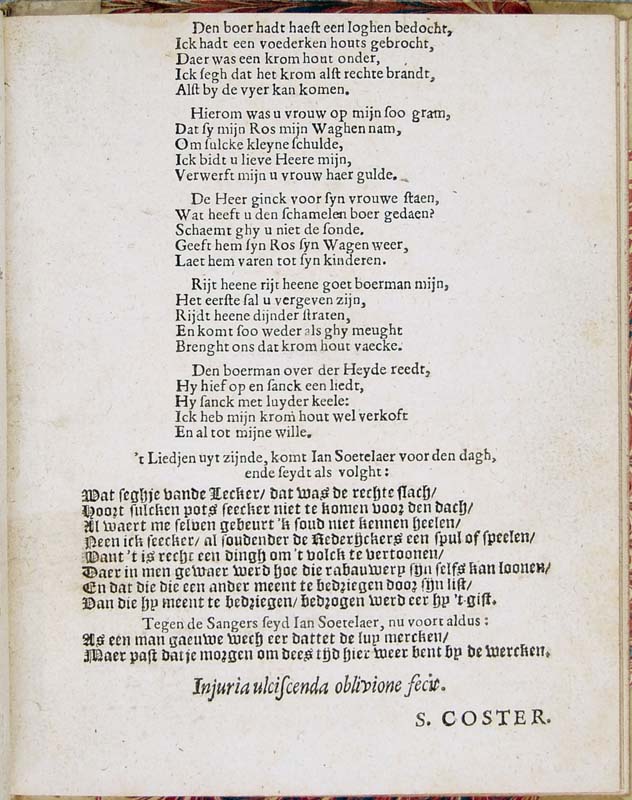 Den boer hadt haeſt een loghen bedocht,
Ick hadt een voederken houts gebrocht,
Daer was een krom hout onder,
Ick ſegh dat het krom alſt rechte brandt,
Alſt by de vyer kan komen.
Hierom was u vrouw op mijn ſoo gram,
Dat ſy mijn Ros mijn Waghen nam,
Om ſulcke kleyne ſchulde,
Ick bidt u lieve Heere mijn,
Verwerft mijn u vrouw haer gulde.
De Heer ginck voor ſyn vrouwe ſtaen,
Wat heeft u den ſchamelen boer gedaen?
Schaemt ghy u niet de ſonde.
Geeft hem ſyn Ros ſyn Wagen weer,
Laet hem varen tot ſyn kinderen.
Rijt heene rijt heene goet boerman mijn,
Het eerſte ſal u vergeven zijn,
Rijdt heene dijnder ſtraten,
En komt ſoo weder als ghy meught
Brenght ons dat krom hout vaecke.
Den boerman over der Heyde reedt,
Hy hief op en ſanck een liedt,
Hy ſanck met luyder keele:
Ick heb mijn krom hout wel verkoft
En al tot mijne wille.
't Liedjen uyt zijnde, komt Ian Soetelaer voor den dagh,
ende ſeydt als volght:
Wat ſeghje vande Lecker/ dat was de rechte ſlach/
Hoort ſulcken pots ſeecker niet te komen voor den dach/
Al waert me ſelven gebeurt 'k ſoud niet kennen heelen/
Neen ick ſeecker/ al ſoudender de Rederijckers een ſpul of ſpeelen/
Want 't is recht een dingh om 't volck te vertoonen/
Daer in men gewaer werd hoe die rabauwery ſijn ſelfs kan loonen/
En dat die die een ander meent te bedriegen door ſijn liſt/
Dan die hy meent te bedriegen/ bedrogen werd eer hy 't giſt.
Tegen de Sangers ſeyd Ian Soetelaer, nu voort aldus:
As een man gaeuwe wech eer dattet de luy mercken/
Maer paſt datje morgen om dees tijd hier weer bent by de wercken.
Injuria ulciſcenda oblivione fecit.
S. COSTER.